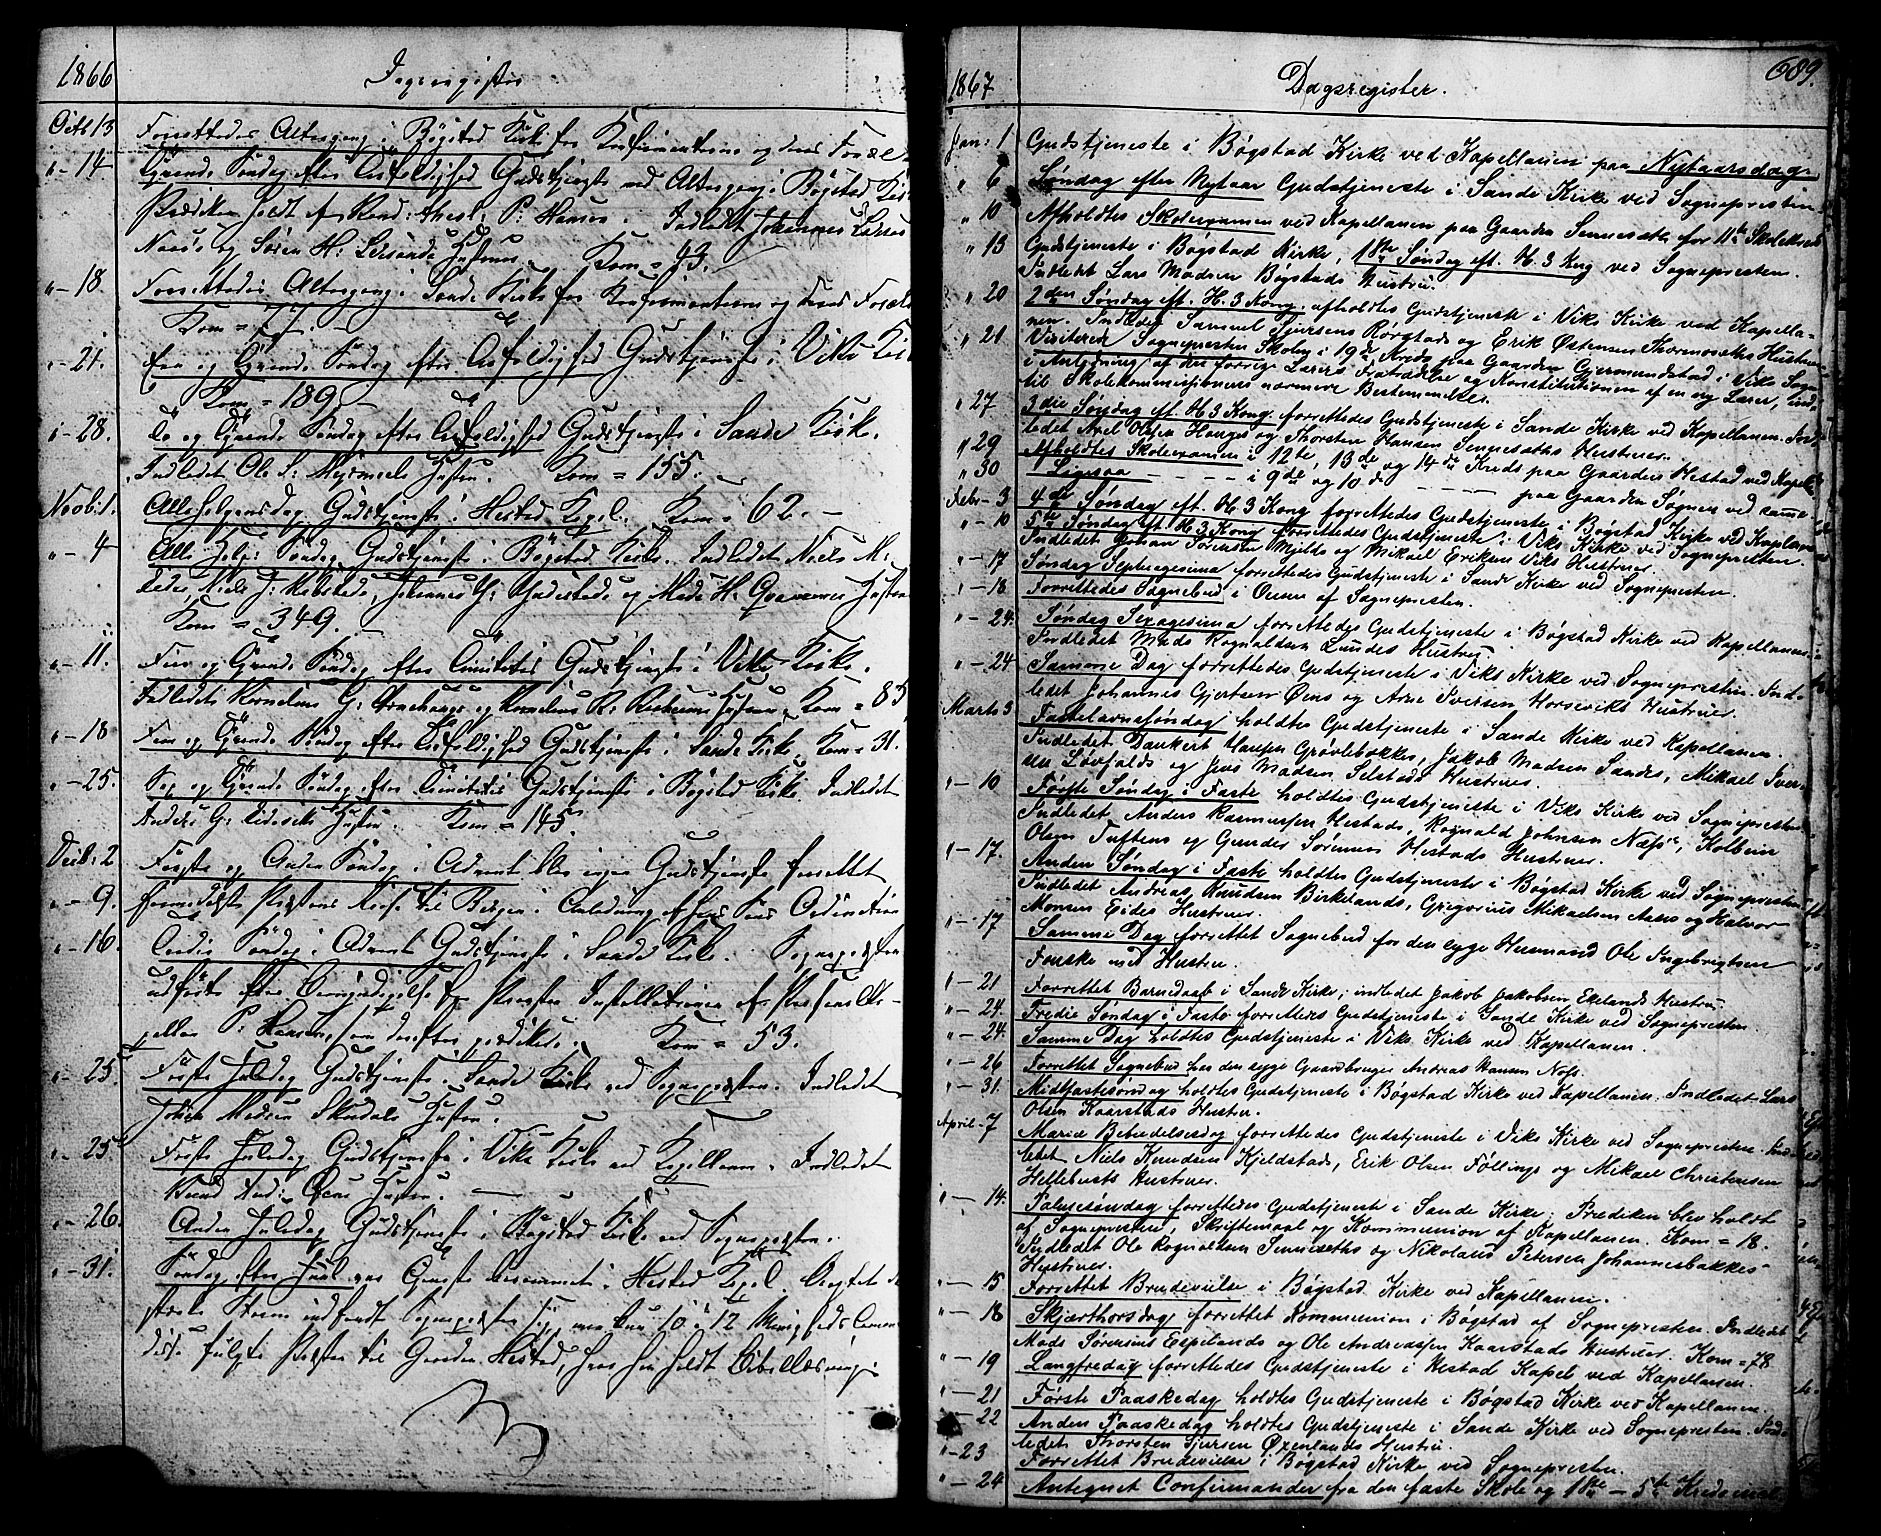 1866
Dagsregister
Octb 13 Forrettedes Altergang i Bøgstad Kirke for Konfirmanterne og deres Foræl-
" - 14 Gudstjeneste med Altergang i Bøgstad Kirke
Prædiken holdt af Kand. theol. P. Hansen. Indledet Johannes
og Søren H. Hustruer. Kom = 43.
" - 18 Forrettedes Altergang i Sande Kirke for Konfirmanterne og deres Foræl
Kom = 77.
" - 21. Een og Tyvende Søndag efter Trefoldighed Gudstjeneste i Viks Kirke
Kom = 189
" - 28. To og Tyvende Søndag efter Trefoldighed Gudstjeneste i Sande Kirke.
Indledet Ole S. Hustru. Kom = 155.
Novb. 1. Allehelgensdag Gudstjeneste i Hestad Kapel. Kom = 62. -
" - 4 Alle Helg. Søndag Gudstjeneste i Bøgstad Kirke. Indledet Niels M.
Niels J. Johannes G. og Mads H. Hustruer
Kom = 349.
" - 11. Fire og Tyvende Søndag efter Trinitatis Gudstjeneste i Viks Kirke.
Indledet Kornelius G. og Kornelius R. Hustruer Kom = 85
" - 18 Fem og Tyvende Søndag efter Trefoldighed Gudstjeneste i Sande Kirke. Kom = 31.
" - 25. Sex og Tyvende Søndag efter Trinitatis Gudstjeneste i Bøgstad Kirke. Indledet
Anders G. Hustru. Kom = 145.
Decb. 2 Første og Anden Søndag i Advent blev ingen Gudstjeneste forrettet
" - 9. formedelst Præstens Reise til Bergen i Anledning af hans Søns Ordination
" - 16. Tredie Søndag i Advent Gudstjeneste i Sande Kirke. Sognepresten
udførte efter Bemyndigelse fra Provsten Installationen af Pers. Ka-
pellan P. Hansen, som derefter prædikede. Kom = 53.
" - 25. Første Juledag Gudstjeneste i Sande Kirke ved Sognepresten. Indledet
Johan Madsen Skudals Hustru.
" - 25 Første Juledag Gudstjeneste i Viks Kirke ved Kapellanen. Indledet
Hustru.
" - 26. Anden Juledag Gudstjeneste i Bøgstad Kirke ved Sognepresten.
" - 31. Søndag efter Juul var Gudstjeneste berammet i Hestad Kapel. Men
stærk Storm indfandt Sognepresten sig, men kun 10 à 12 Menigheds Lemmer
disse fulgte Presten til Gaarden Hestad, hvor han holdt Bibellæsning.
1867
Dagsregister.
689.
Jan: 1 Gudstjeneste i Bøgstad Kirke ved Kapellanen paa Nytaarsdag.
" 6 Søndag efter Nytaar Gudstjeneste i Sande Kirke ved Sognepresten.
" 10 Afholdtes Skoleexamen ved Kapellanen paa Gaarden Sennesæth for 11te Skolekreds
" 13 Gudstjeneste i Bøgstad Kirke, 1ste Søndag eft. H. 3 Kong ved Sognepresten.
Indledet Lars Madsen Bøgstads Hustru.
" 20 2den Søndag eft. H. 3 Kong. afholdtes Gudstjeneste i Viks Kirke ved Kapella-
nen. Indledet Samuel Sjursens Rørstads og Erik Østensen Thormosæths Hustruer
" 21 Visiterede Sognepresten Skolen i 19de Kreds paa Gaarden Gjermundstad i Viks Sogn
i Anledning af den forrige Lærers Fratrædelse og Konstitutionen af en ny Lærer, ind-
til Skolekommissionens nærmere Bestemmelse.
" 27 3die Søndag eft. H. 3 Kong. forrettedes Gudstjeneste i Sande Kirke ved Kapellanen. Ind-
ledet Axel Olsen Hauges og Thorsten Hansen Sennesæths Hustruer.
" 29 Afholdtes Skoleexamen i 12te, 13de og 14de Kreds paa Gaarden Hestad ved Kapell.
" 30 Ligesaa - - - - i 9de og 10de - - - - paa Gaarden Søgnen ved samme
Febr. - 3 4de Søndag eft. H. 3 Kong forrettedes Gudstjeneste i Bøgstad Kirke ved Kapellanen
" - 10 5te Søndag eft H. 3 Kong forrettedes Gudstjeneste i Viks Kirke ved Sognepresten
Indledet Johan Sørensen Mjelds og Mikael Eriksen Viks Hustruer.
" - 17 Søndag Septuagesima forrettedes Gudstjeneste i Sande Kirke ved Sognepresten.
" - 18 Forrettedes Sognebud i Ousen af Sognepresten.
" - 24. Søndag Sexagesima forrettedes Gudstjeneste i Bøgstad Kirke ved Kapellanen.
Indledet Mads Rognaldsen Lundes Hustru.
" - 24 Samme Dag forrettedes Gudstjeneste i Viks Kirke ved Sognepresten. Ind-
ledet Johannes Gjertsen Øens og Arne Iversen Horseviks Hustruer.
Marts 3 Fastelavnssøndag holdtes Gudstjeneste i Sande Kirke ved Kapellanen.
Indledet Dankert Hansen Grøvlebækkes, Jakob Madsen Sandes, Mikael Iver-
sen Løvfalds og Jens Madsen Selstads Hustruer.
" - 10 Første Søndag i Faste holdtes Gudstjeneste i Viks Kirke ved Sognepresten.
Indledet Anders Rasmussen Hestads, Rognald Johnsen Næss, Kolbein
Olsen Tuftens og Gunder Sørensen Hestads Hustruer.
" - 17. Anden Søndag i Faste holdtes Gudstjeneste i Bøgstad Kirke ved Sognepresten
Indledet Andreas Knudsen Birkelands, Gregorius Mikaelsen Aases og Halvor
Monsen Eides Hustruer.
" - 17 Samme Dag forrettet Sognebud for den syge Husmand Ole Ingebrigtsen
Fouske med Hustru.
" - 21 Forrettet Barnedaab i Sande Kirke; indledet Jakob Jakobsen Ekelands Hustru
" - 24. Tredie Søndag i Faste forrettedes Gudstjeneste i Sande Kirke ved Sognepresten.
" - 24. Samme Dag holdtes Gudstjeneste i Viks Kirke ved Kapellanen.
" - 26 Forrettet Sognebud hos den syge Gaardbruger Andreas Hansen Næss.
" - 31. Midtfastesøndag holdtes Gudstjeneste i Bøgstad Kirke ved Kapellanen. Indledet Lars
Olsen Kaarstads Hustru.
April - 7 Mariæ Bebudelsesdag forrettedes Gudstjeneste i Viks Kirke ved Sognepresten. Ind-
ledet Niels Knudsen Kjeldstads, Erik Olsen Føllings og Mikael Christensen
Hellebusts Hustruer.
" - 14. Palmesøndag forrettedes Gudstjeneste i Sande Kirke; Prediken blev holdt
af Sognepresten, Skriftemaal og Kommunion af Kapellanen. Kom = 18.
Indledet Ole Rognaldsen Sennesæths og Nikolaus Petersen Johannesbakkes
Hustruer.
" - 15 Forrettet Brudevielse i Bøgstad Kirke ved Kapellanen.
" - 18 Skjærthorsdag forrettet Kommunion i Bøgstad af Sognepresten. Indledet
Mads Sørensens Espelands og Ole Andreassen Kaarstads Hustruer. Kom = 78
" - 19 Langfredag forrettedes Gudstjeneste i Hestad Kapel ved Kapellanen
" - 21 Første Paaskedag holdtes Gudstjeneste i Bøgstad Kirke ved Kapellanen.
" - 22 Anden Paaskedag holdtes Gudstjeneste i Sande Kirke ved Sognepresten. Ind-
ledet Thorsten Sjursen Øxenlands Hustru.
" - 23 Forrettet Brudevielse i Bøgstad Kirke ved Sognepresten.
" - 24 Antegnet Confirmander fra den faste Skole og 1ste - 5te Kreds